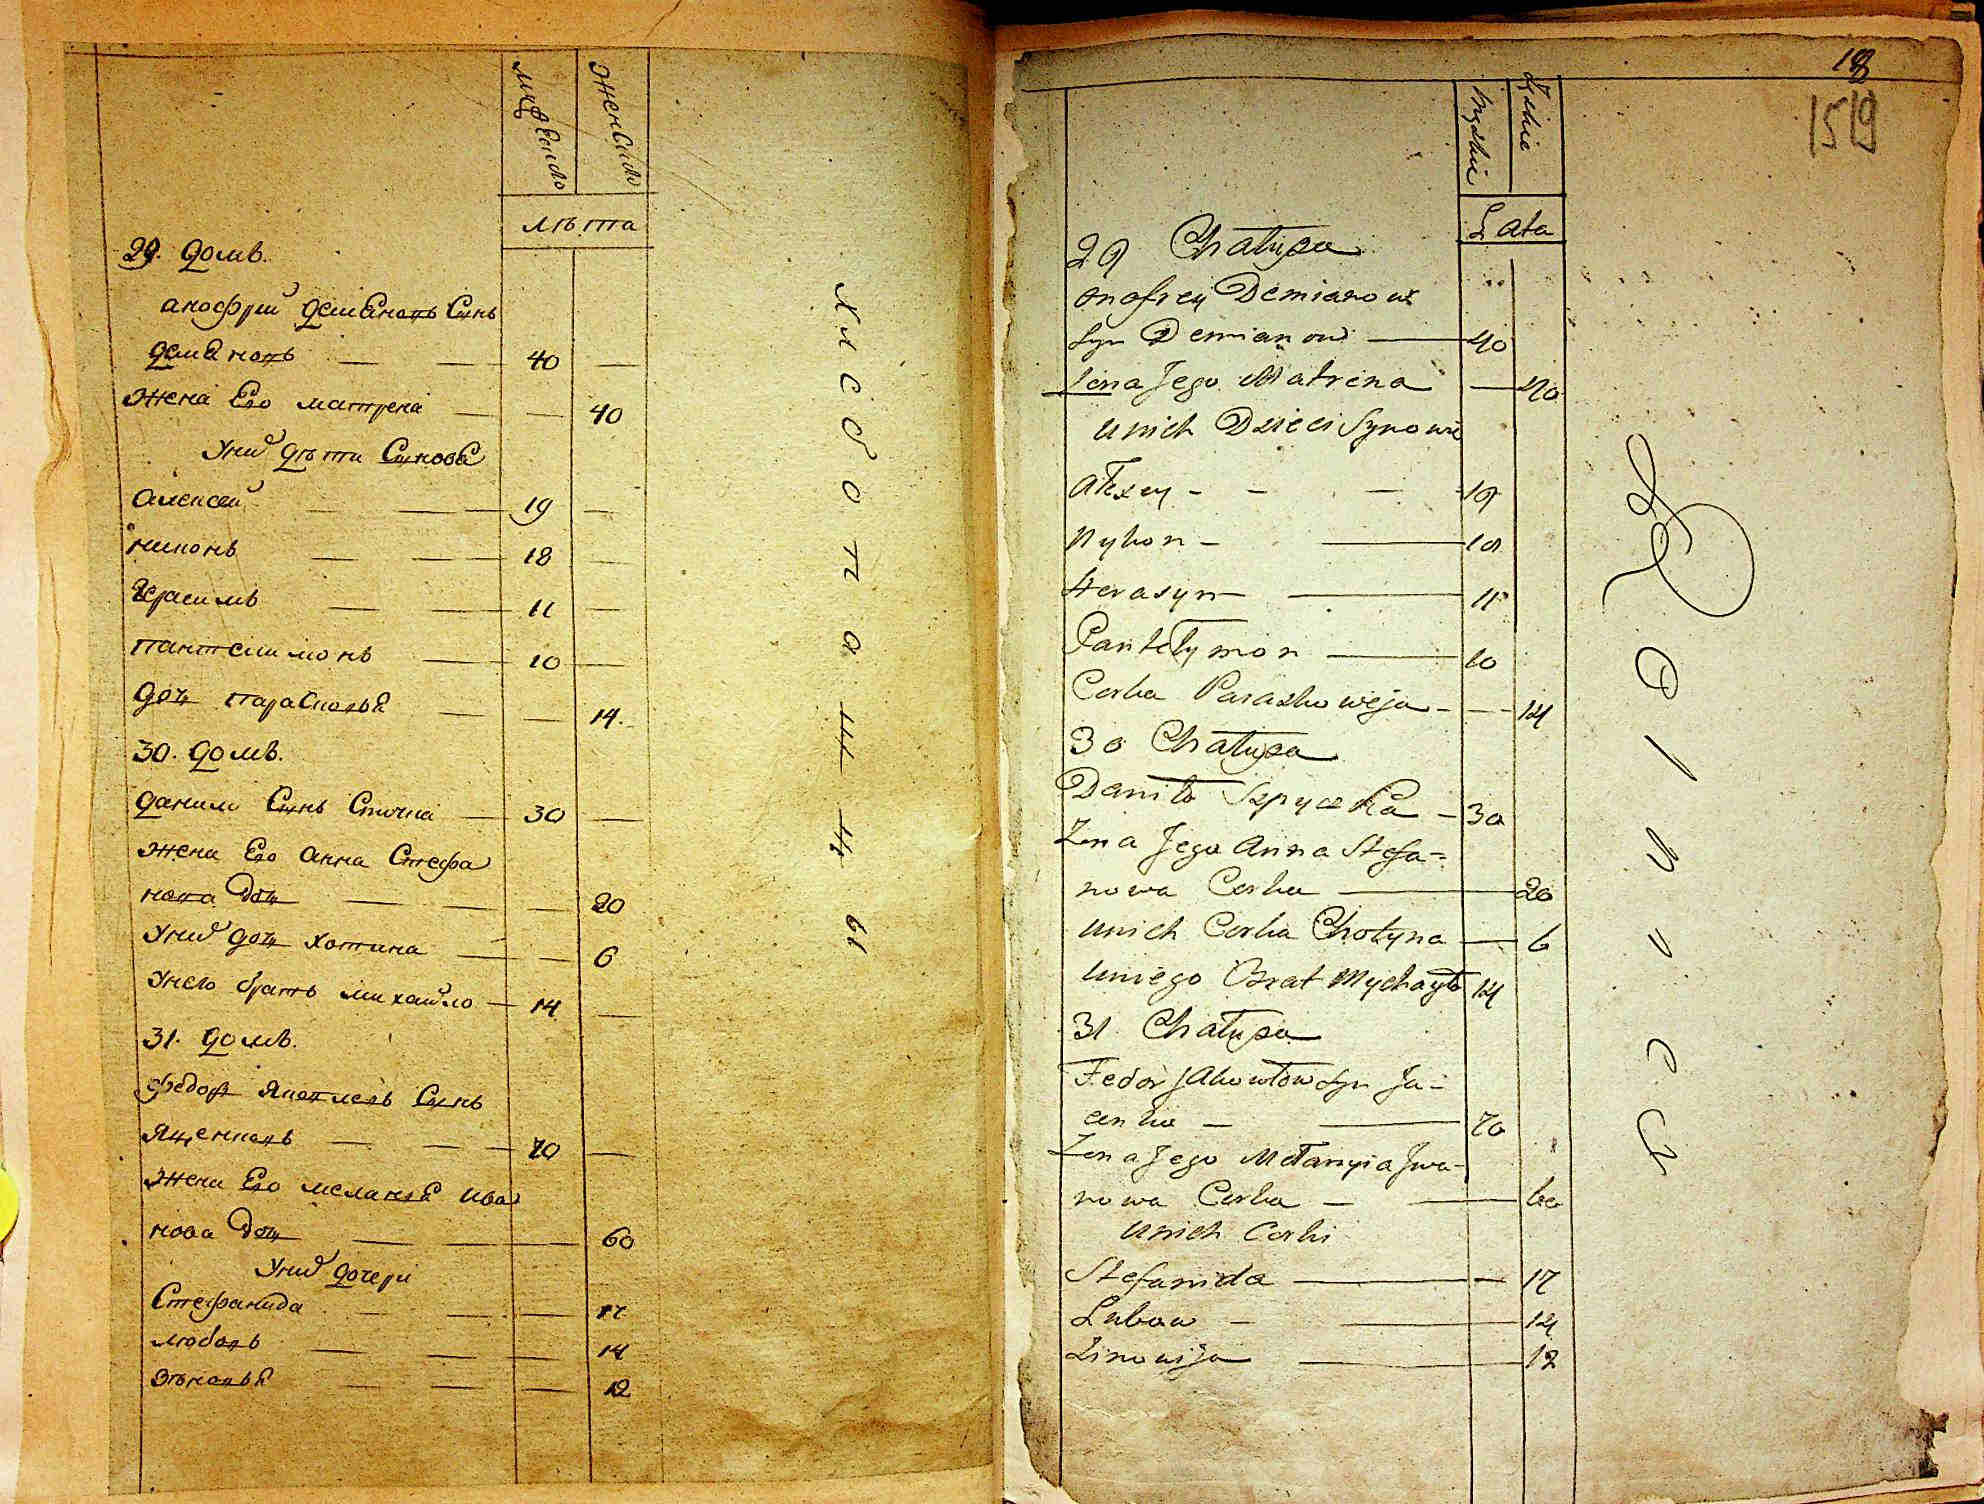 мужеско
женско
лѣта
29. домъ.
анофрий демяновъ Сынъ
демяновъ — — 40 —
жена Его матрена — — 40
Уних дѣти Синовя
алексей — — 19 —
никонъ — — 18 —
Герасимъ — — 11 —
пантелимонъ — 10 —
дочь парасковья — — 14.
30. домъ.
данило Сынъ — 30 —
жена Его анна Стефа
нова дочь — — — 20
Уних дочь хотина — — 6
Унего братъ михайло — 14 —
31. домъ.
федор Яковлевъ Сынъ
Яценковъ — — 70 —
жена Его меланья ива
нова дочь — — 60
Уних дочери
Стефанида — — 17
любовь — — — 14
зѣновья — — — 12
хлебопашцы
18
1519
Męzkie
Żeńkie
Lata
29 Chałupa
Onofrey Demianow
Syn Demianow — 40
Żona Jego Matrena — 40
unich Dzieci Synowie
Alexey - - — 19
Nykon - — 18
Herasym — 11
Pantełymon — 10
Corka Paraskoweja - - 14
30 Chałupa
Daniło — 30
Żona Jego Anna Stefa=
nowa Corka — 20
unich Corka Chotyna — 6
uniego Brat Mychayło 14
31 Chałupa
Fedor Jakowlow Syn Ja=
cenka — — 70
Żona Jego Mełanyia Jwa=
nowa Corka — — 60
unich Corki
Stefanida — — 17
Lubow - — 14
Zinowija — 12
Rolnicy